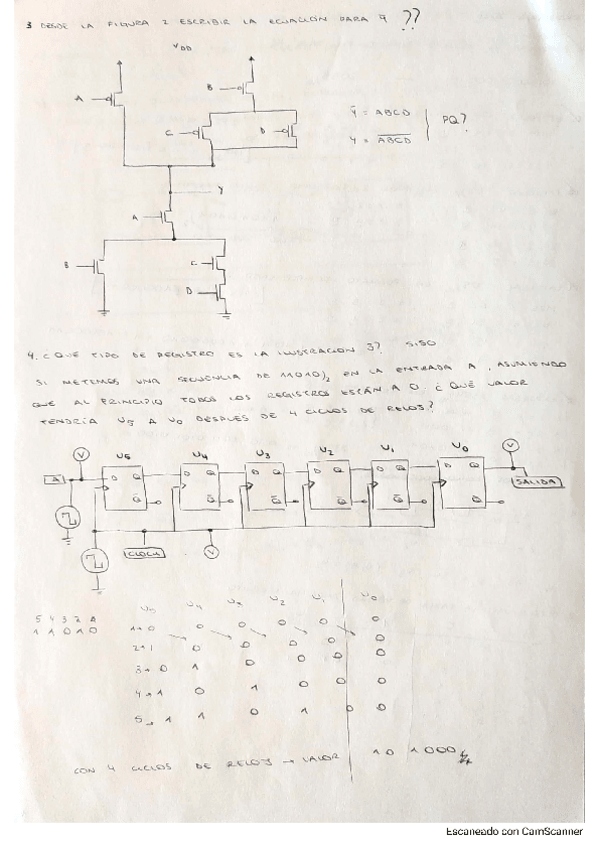 3 DESDE LA FIGURA 2 ESCRIBIR LA ECUACIÓN PARA Y ??
VDD
A
B
C
D
Ȳ = ABCD
Y = \overline{ABCD}
PQ?
Y
A
B
C
D
4. ¿QUÉ TIPO DE REGISTRO ES LA ILUSTRACIÓN 3? SISO
SI METEMOS UNA SECUENCIA DE 11010)₂ EN LA ENTRADA A, ASUMIENDO
QUE AL PRINCIPIO TODOS LOS REGISTROS ESTÁN A 0. ¿QUÉ VALOR
TENDRÍA U5 A U0 DESPUÉS DE 4 CICLOS DE RELOJ?
U5 U4 U3 U2 U1 U0
V V
A D Q D Q D Q D Q D Q D Q SALIDA
Q̄ Q̄ Q̄ Q̄ Q̄ Q̄
CLOCK V
5 4 3 2 1
1 1 0 1 0
U5 U4 U3 U2 U1 U0
1→0 0 0 0 0 0
2→1 0 0 0 0 0
3→0 1 0 0 0 0
4→1 0 1 0 0 0
5→1 1 0 1 0 0
CON 4 CICLOS DE RELOJ → VALOR 101000
Escaneado con CamScanner